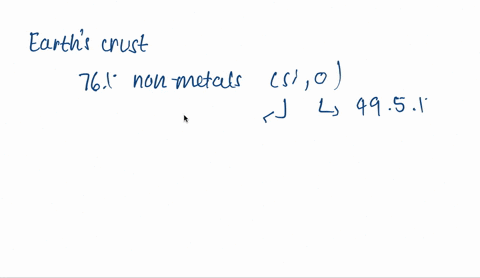 Earth's crust
76% non-metals (Si, O)
49.5%